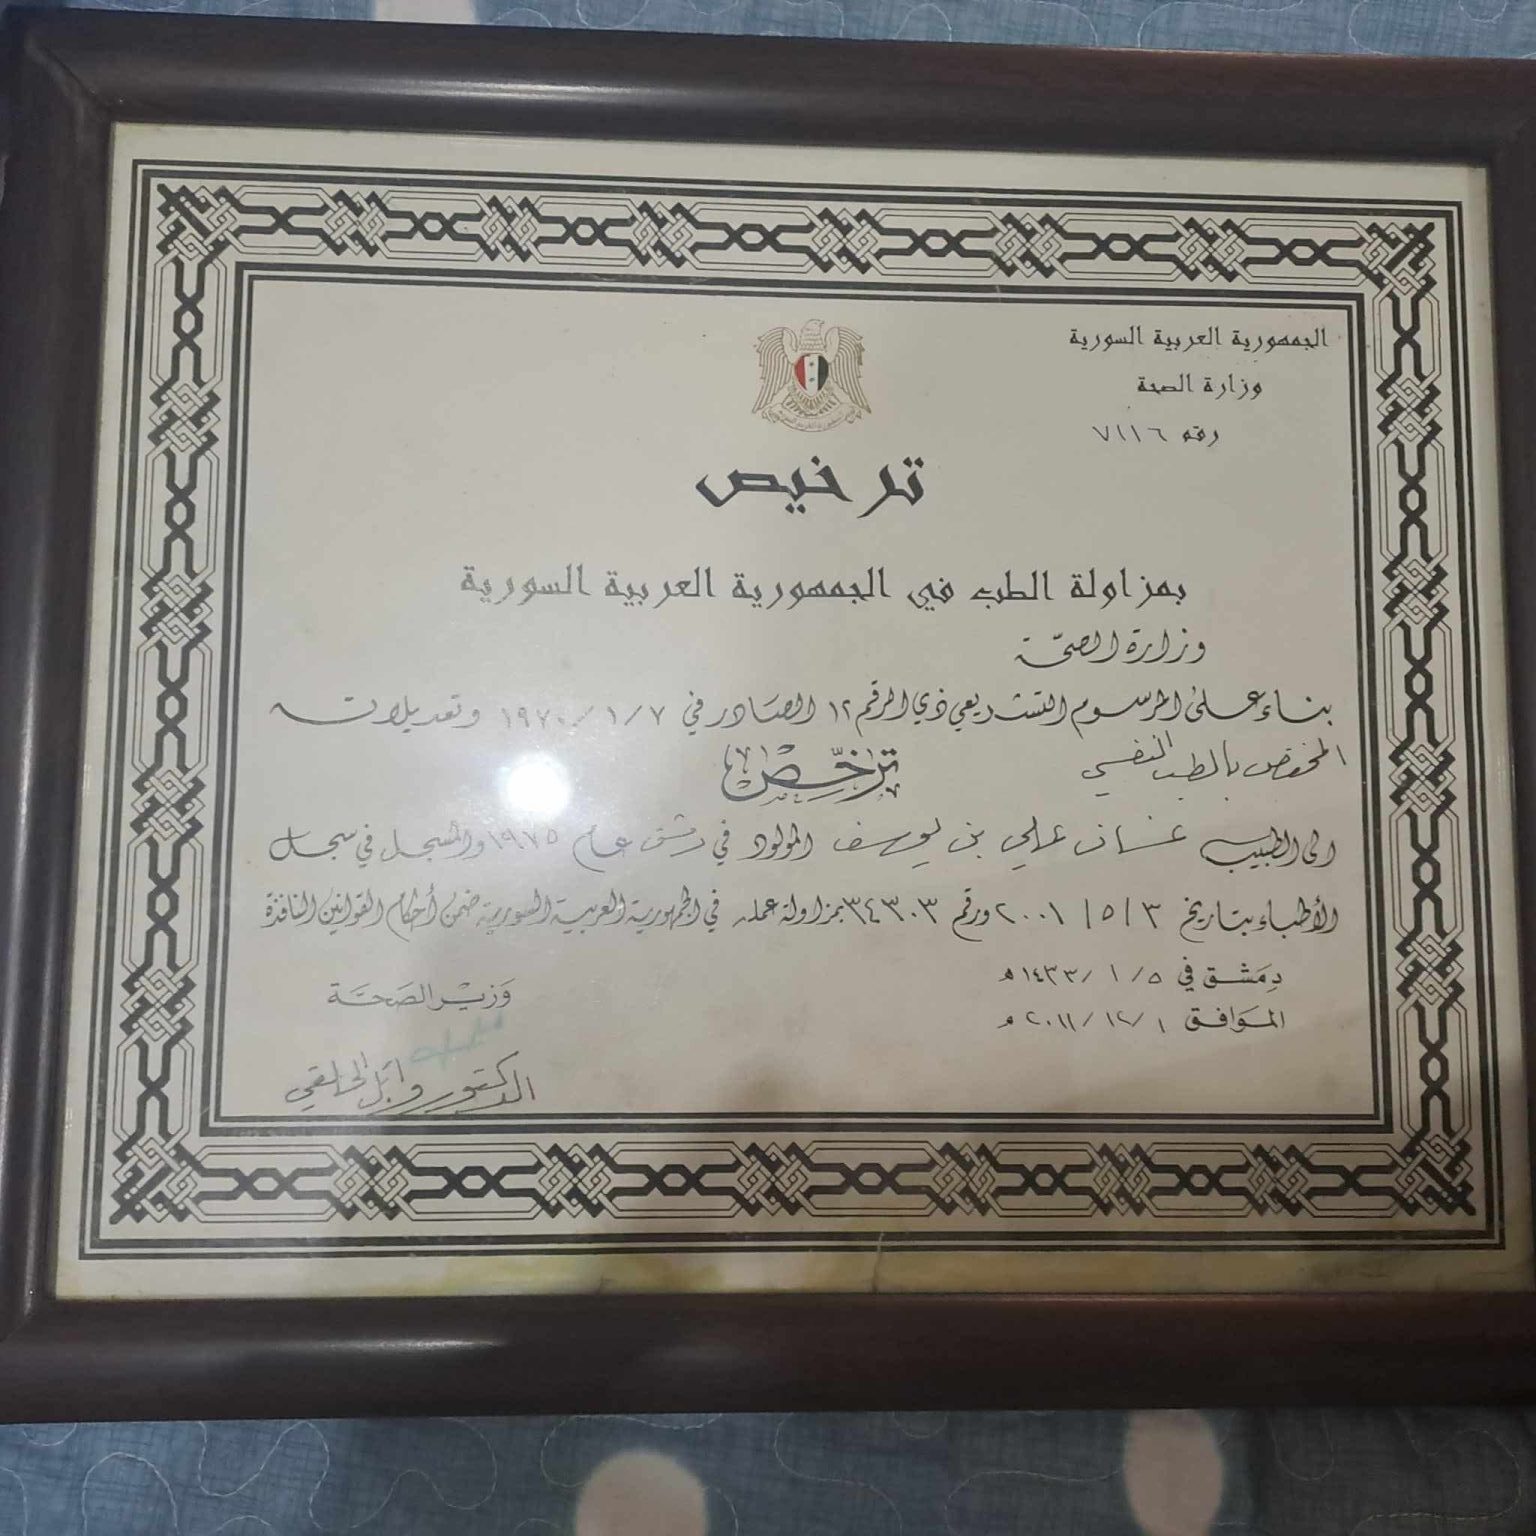 الجمهورية العربية السورية
وزارة الصحة
رقم ٧١١٦
ترخيص
بمزاولة الطب في الجمهورية العربية السورية
وزارة الصحّة
بناء على المرسوم التشريعي ذي الرقم ١٢ الصادر في ١٩٧٠/١/٧ وتعديلاته
ترخّص
المختص بالطب النفسي
الى الطبيب غسان علي بن يوسف المولود في دمشق عام ١٩٧٥ والمسجل في سجل
الأطباء بتاريخ ٣ / ٥ / ٢٠٠١ ورقم ٣٤٣٠٣ بمزاولة عمله في الجمهورية العربية السورية ضمن أحكام القوانين النافذة
دمشق في ٥ / ١ / ١٤٣٣ هـ
الموافق ١ / ١٢ / ٢٠١١ م
وزير الصحة
الدكتور وائل الحلقي